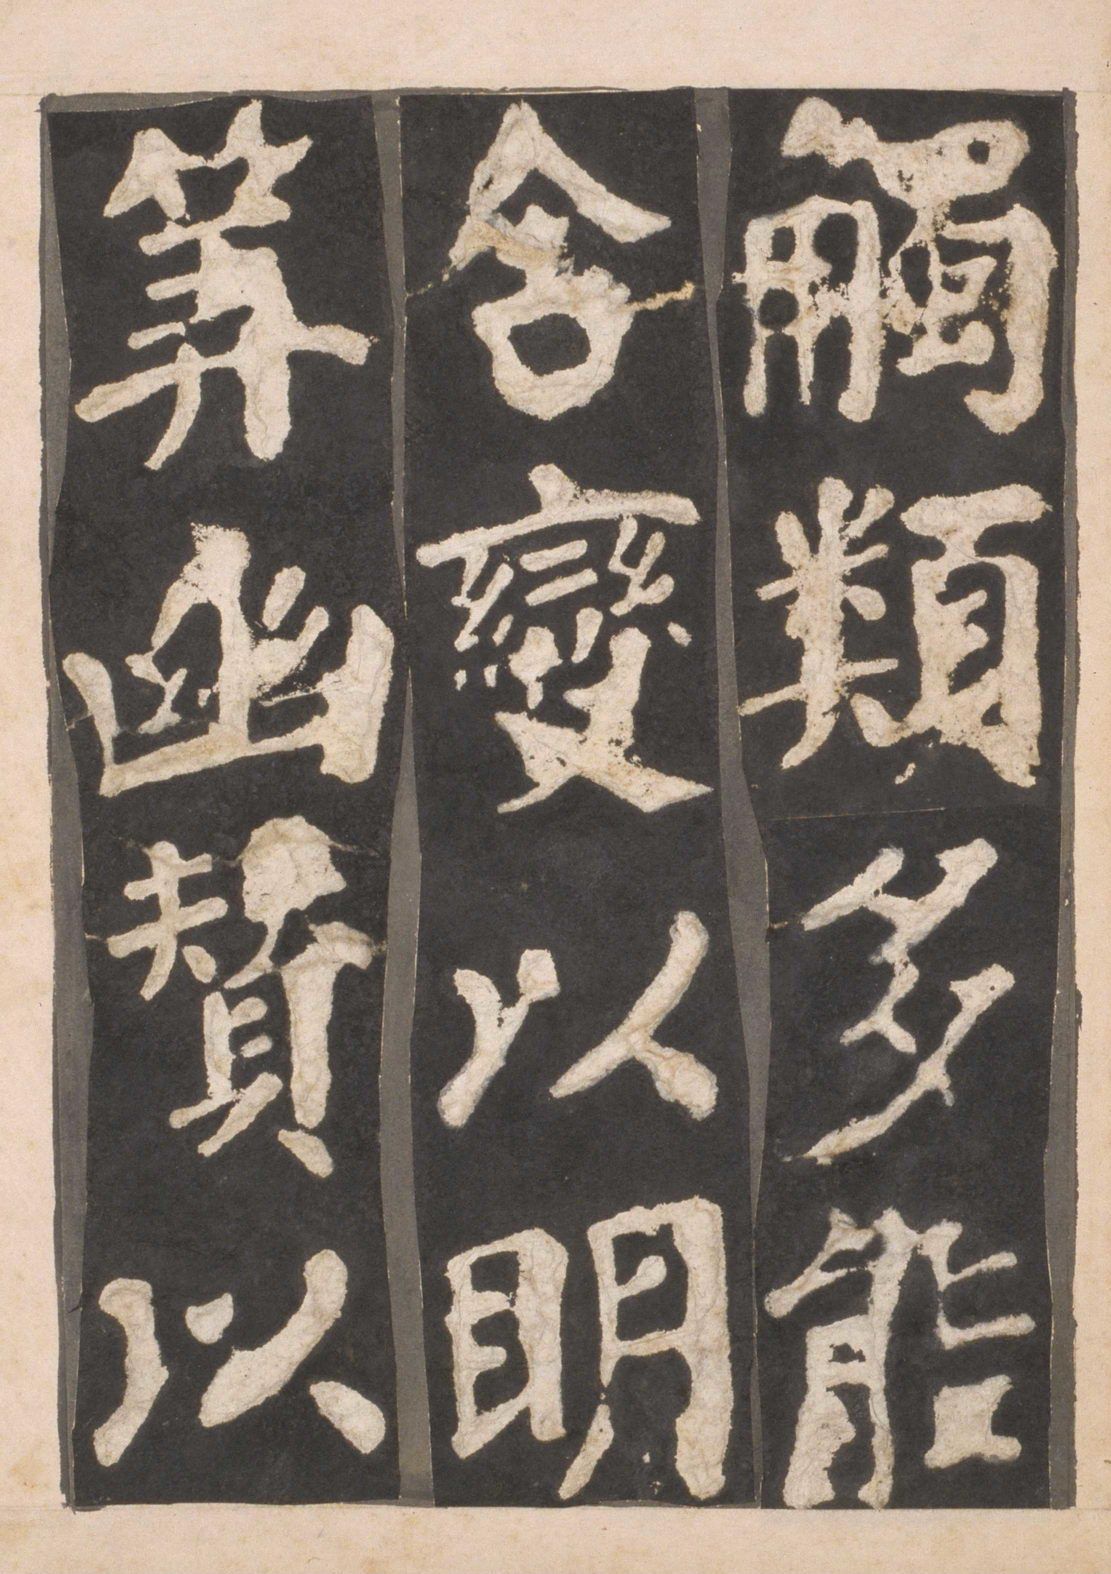 觸類多能
合變以明
筭幽賛以